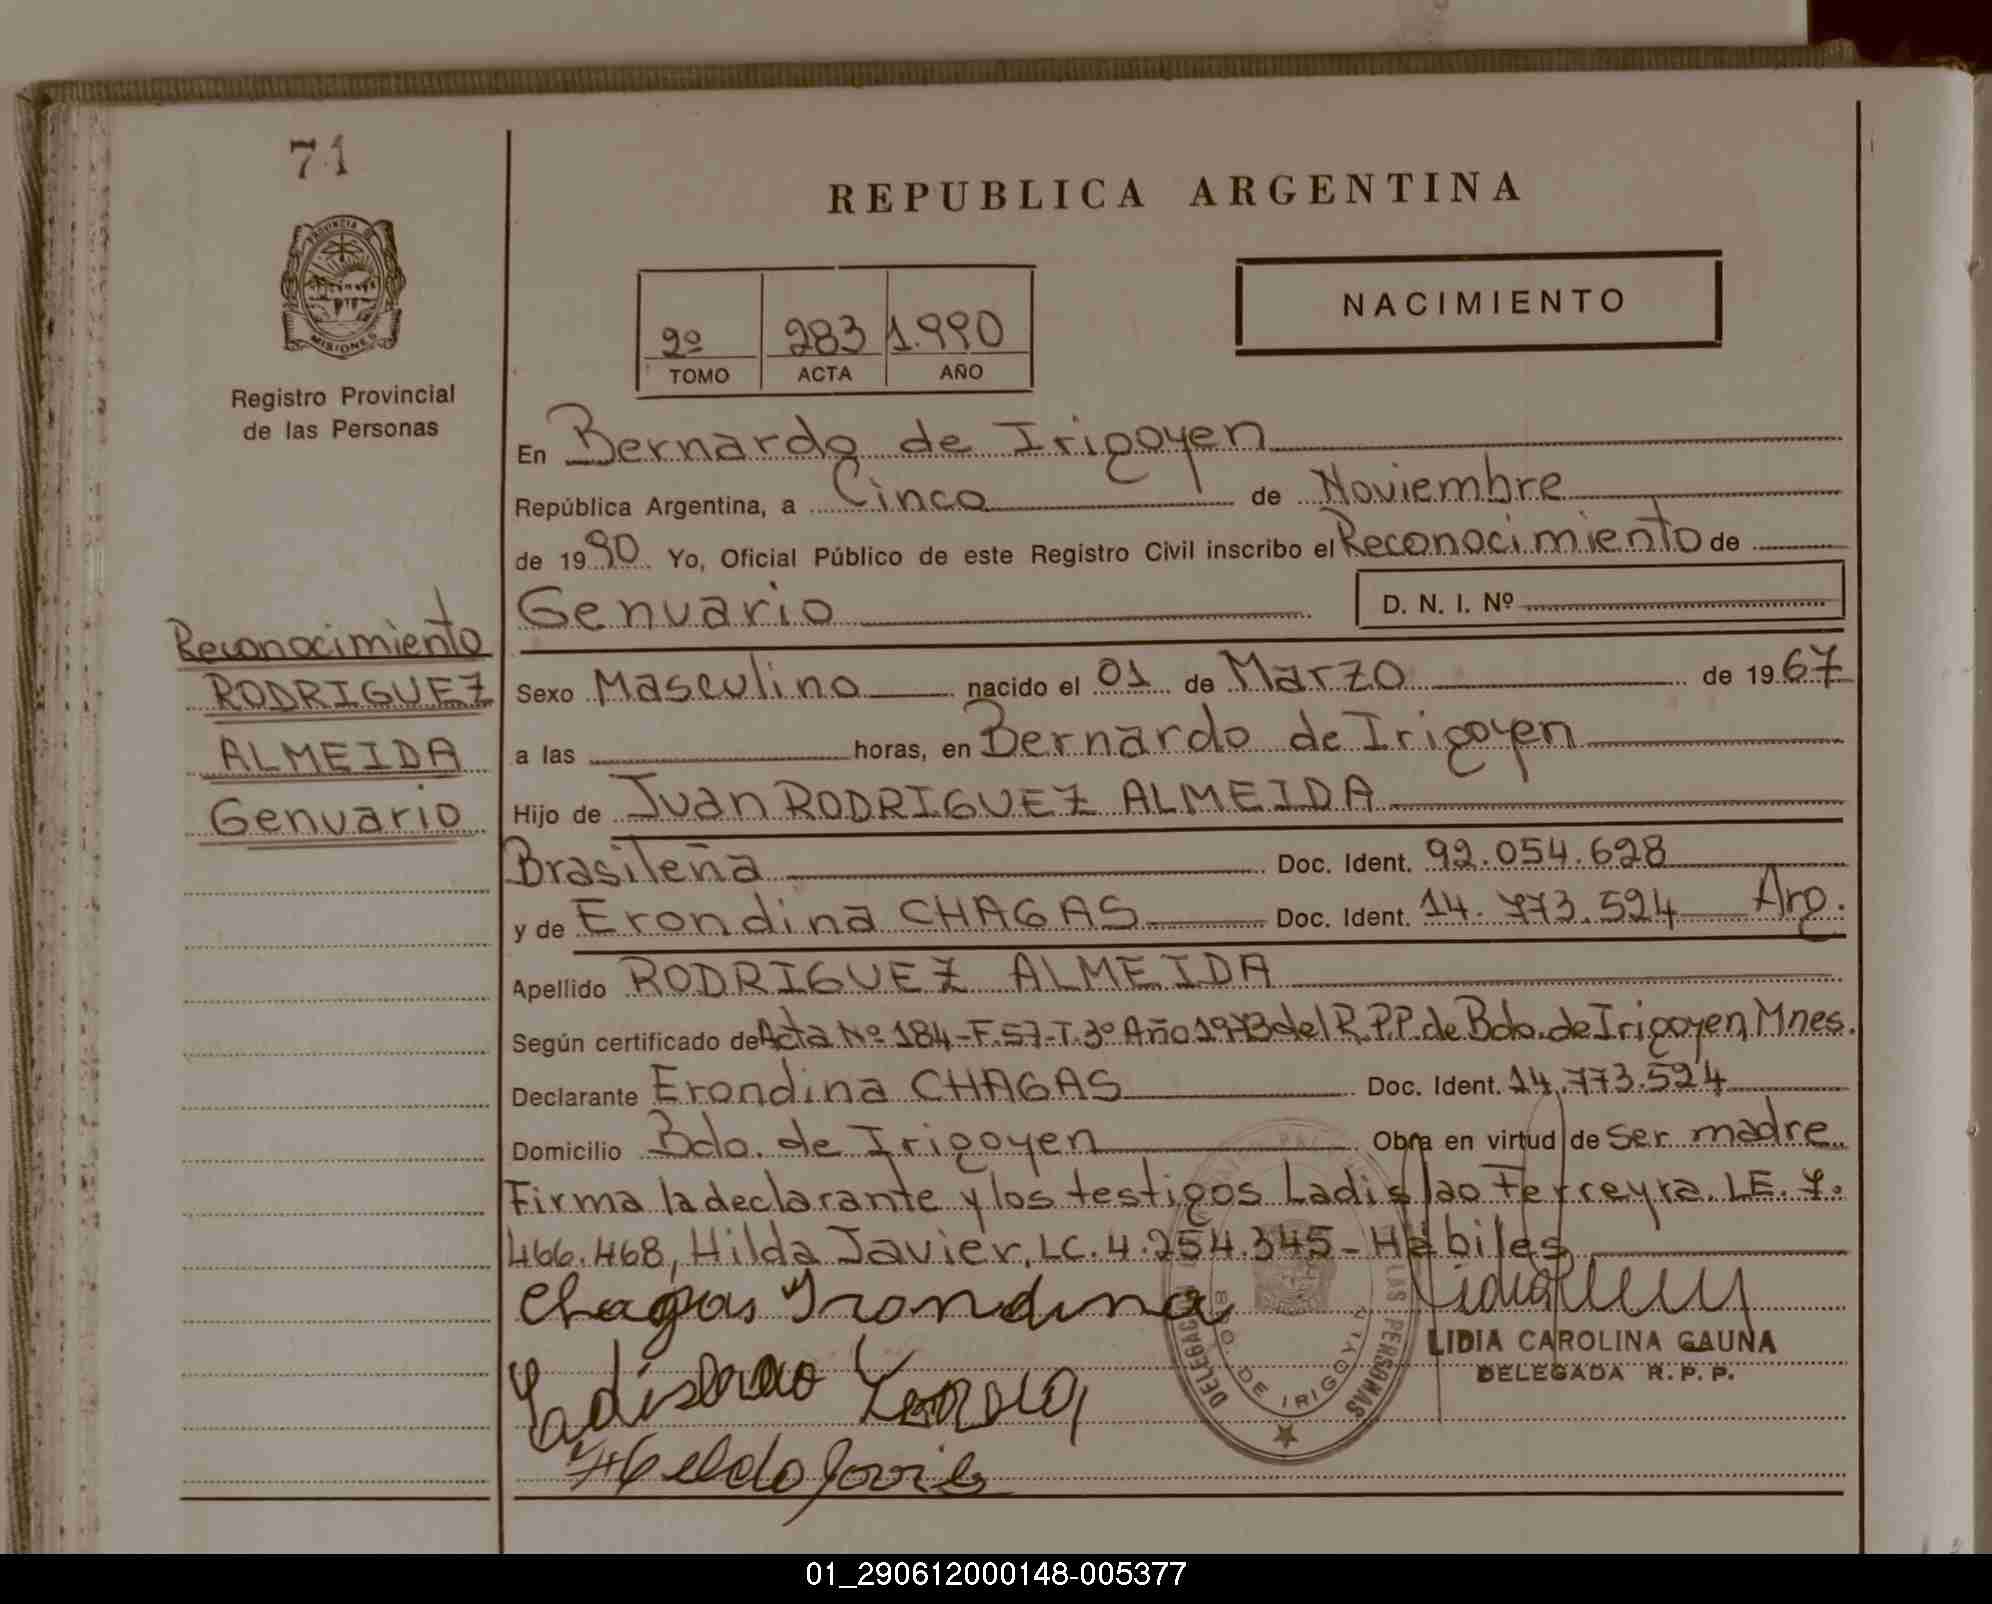 71
REPUBLICA ARGENTINA
PROVINCIA DE
MISIONES
Registro Provincial
de las Personas
2º 283 1.990
TOMO ACTA AÑO
NACIMIENTO
En Bernardo de Irigoyen
República Argentina, a Cinco de Noviembre
de 1990 Yo, Oficial Público de este Registro Civil inscribo el Reconocimiento de
Genuario D. N. I. Nº
Reconocimiento
RODRIGUEZ
ALMEIDA
Genuario
Sexo Masculino nacido el 01 de Marzo de 1967
a las horas, en Bernardo de Irigoyen
Hijo de Juan RODRIGUEZ ALMEIDA
Brasileña Doc. Ident. 92.054.628
y de Erondina CHAGAS Doc. Ident. 14.773.524 Arg.
Apellido RODRIGUEZ ALMEIDA
Según certificado de Acta Nº 184-F.57-T.3º Año 1973 del R.P.P. de Bdo. de Irigoyen, Mnes.
Declarante Erondina CHAGAS Doc. Ident. 14.773.524
Domicilio Bdo. de Irigoyen Obra en virtud de ser madre
Firma la declarante y los testigos Ladislao Ferreyra. LE. 7.
466.468, Hilda Javier, LC. 4.254.345 - Hábiles
Chagas Irondina
LIDIA CAROLINA GAUNA
DELEGADA R. P. P.
DE IRIGOYEN
LAS PERSONAS
01_290612000148-005377